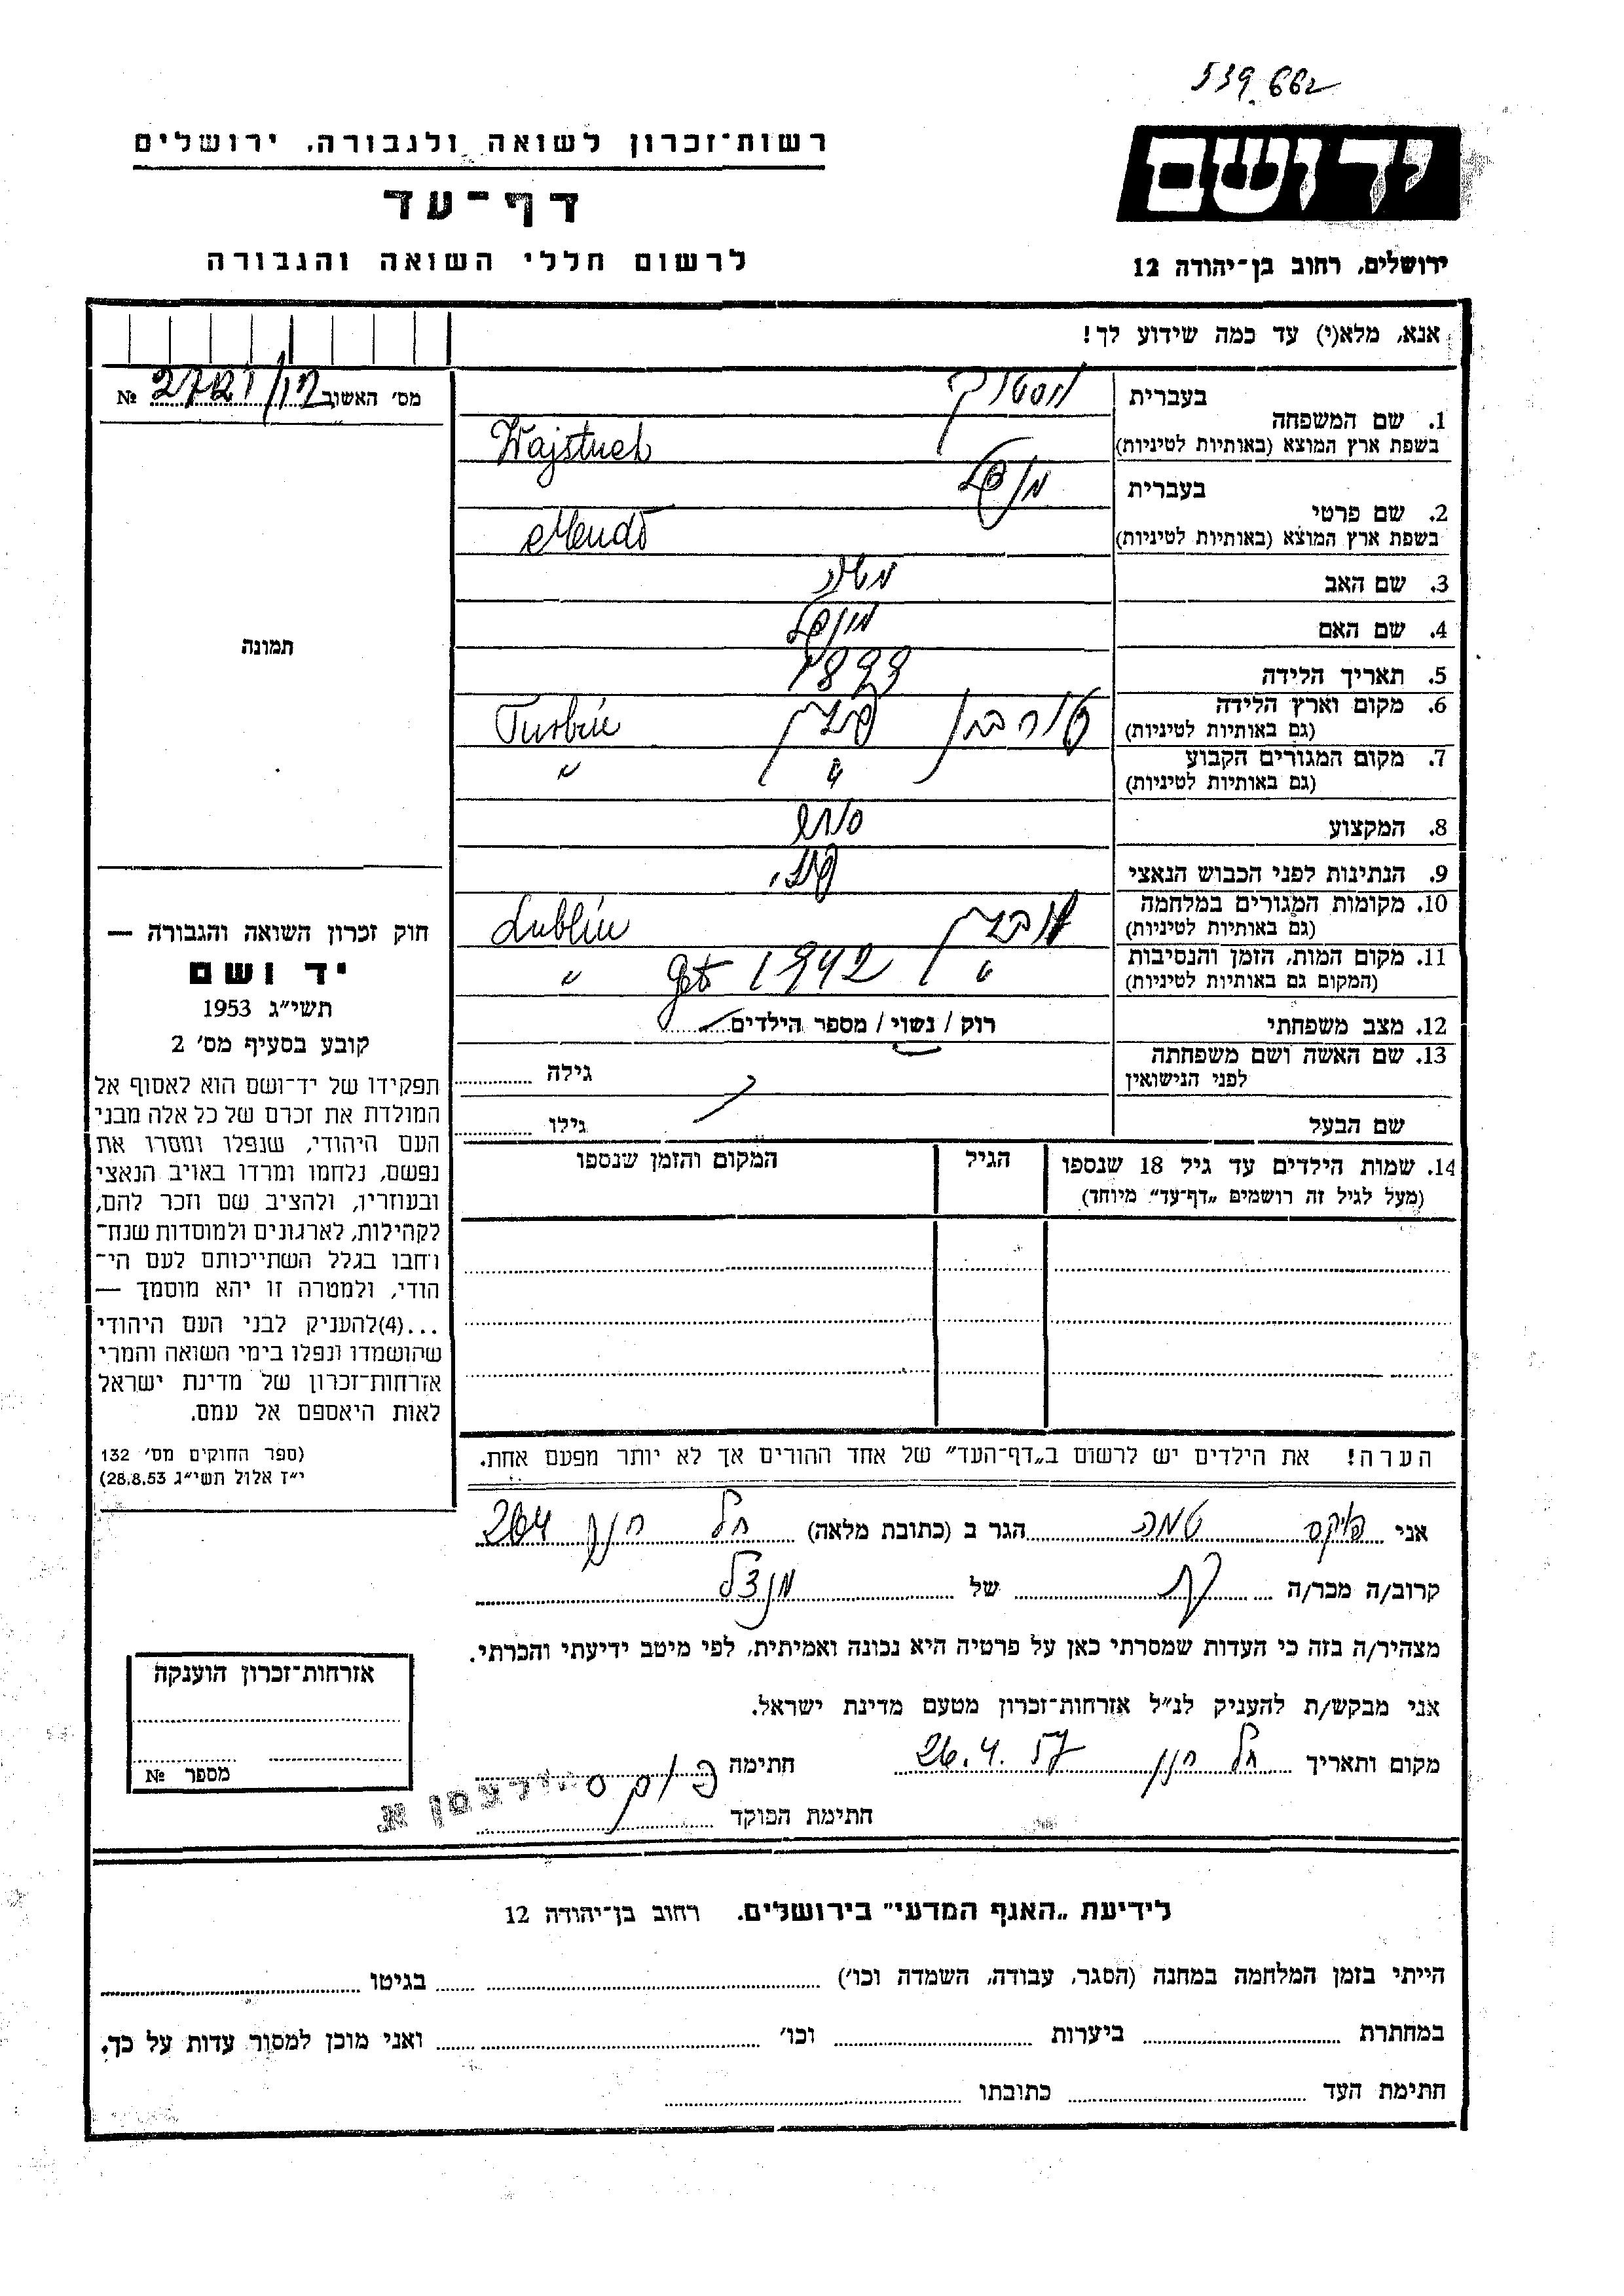 539662
רשות־זכרון לשואה ולגבורה, ירושלים
דף־עד
לרשום חללי השואה והגבורה
יד ושם
ירושלים, רחוב בן־יהודה 12
אנא, מלא(י) עד כמה שידוע לך!
מס׳ האשוב № 2721
1. שם המשפחה
בעברית
בשפת ארץ המוצא (באותיות לטיניות) Wajstuch
2. שם פרטי
בעברית
בשפת ארץ המוצא (באותיות לטיניות)
3. שם האב משה
4. שם האם
5. תאריך הלידה 1899
6. מקום וארץ הלידה
(גם באותיות לטיניות) טורבין פולין Turbin
7. מקום המגורים הקבוע
(גם באותיות לטיניות) " "
8. המקצוע סוחר
9. הנתינות לפני הכבוש הנאצי פולני
10. מקומות המגורים במלחמה
(גם באותיות לטיניות) לובלין Lublin
11. מקום המות, הזמן והנסיבות
(המקום גם באותיות לטיניות) " 1942 "
12. מצב משפחתי רוק / נשוי / מספר הילדים
13. שם האשה ושם משפחתה
לפני הנישואין גילה
שם הבעל גילו
14. שמות הילדים עד גיל 18 שנספו
(מעל לגיל זה רושמים „דף־עד״ מיוחד)
הגיל
המקום והזמן שנספו
הערה! את הילדים יש לרשום ב„דף־העד״ של אחד ההורים אך לא יותר מפעם אחת.
תמונה
חוק זכרון השואה והגבורה —
יד ושם
תשי״ג 1953
קובע בסעיף מס׳ 2
תפקידו של יד־ושם הוא לאסוף אל
המולדת את זכרם של כל אלה מבני
העם היהודי, שנפלו ומסרו את
נפשם, נלחמו ומרדו באויב הנאצי
ובעוזריו, ולהציב שם וזכר להם,
לקהילות, לארגונים ולמוסדות שנח־
רחבו בגלל השתייכותם לעם הי־
הודי, ולמטרה זו יהא מוסמך —
...(4)להעניק לבני העם היהודי
שהושמדו ונפלו בימי השואה והמרי
אזרחות־זכרון של מדינת ישראל
לאות היאספם אל עמם.
(ספר החוקים מס׳ 132
י״ז אלול תשי״ג 28.8.53)
אני פוקס הגר ב (כתובת מלאה) תל חנן 264
קרוב/ה מכר/ה של
מצהיר/ה בזה כי העדות שמסרתי כאן על פרטיה היא נכונה ואמיתית, לפי מיטב ידיעתי והכרתי.
אני מבקש/ת להעניק לנ״ל אזרחות־זכרון מטעם מדינת ישראל.
מקום ותאריך תל חנן 26.4.57 חתימה פוקס
חתימת הפוקד
אזרחות־זכרון הוענקה
מספר №
לידיעת „האגף המדעי״ בירושלים. רחוב בן־יהודה 12
הייתי בזמן המלחמה במחנה (הסגר, עבודה, השמדה וכו׳) בגיטו
במחתרת ביערות וכו׳ ואני מוכן למסור עדות על כך.
חתימת העד כתובתו